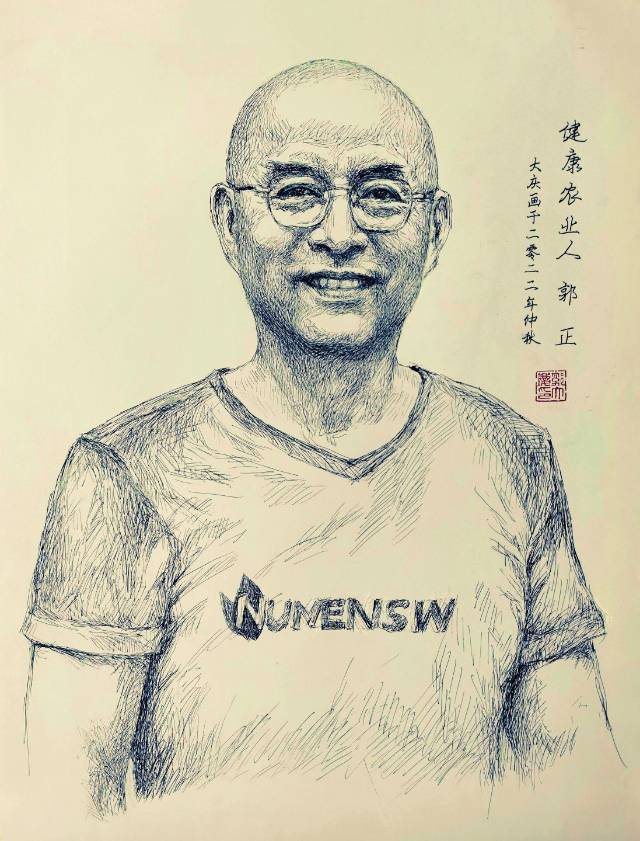 健康农业人 郭正
大庆画于二零二二年仲秋
NUMENSW